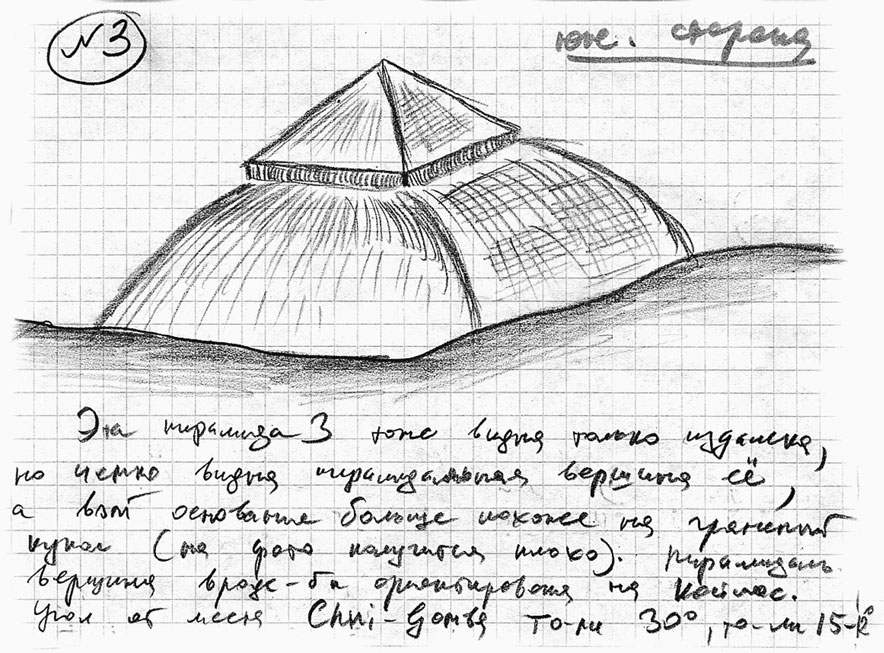 N3
юж. сторона
Эта пирамида 3 тоже видна только издалека,
но четко видна пирамидальная вершина её,
а вот основание больше похоже на граненый
купол (на фото получится плохо). Пирамидаль
вершина вроде-бы ориентирована на Кайлас.
Угол от места Chui-Gomba то-ли 30°, то-ли 15-